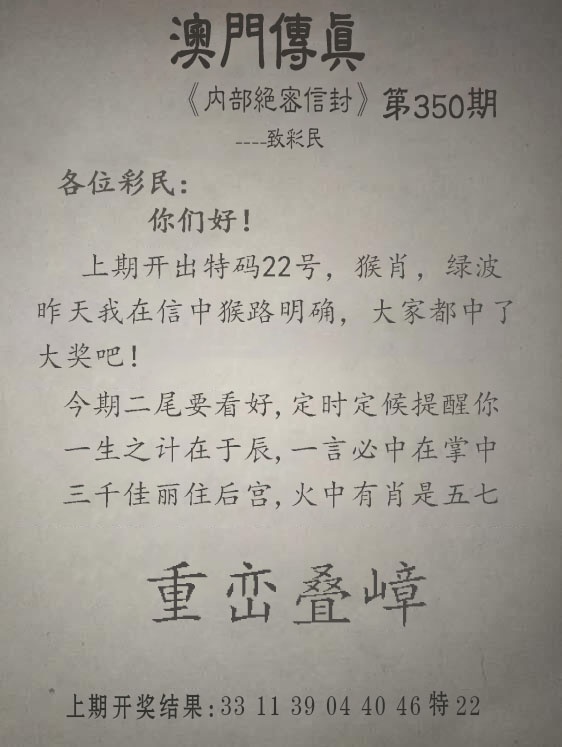 澳門傳眞
《内部絕密信封》第350期
----致彩民
各位彩民:
你们好!
上期开出特码22号，猴肖，绿波
昨天我在信中猴路明确，大家都中了
大奖吧!
今期二尾要看好,定时定候提醒你
一生之计在于辰,一言必中在掌中
三千佳丽住后宫,火中有肖是五七
重峦叠嶂
上期开奖结果:33 11 39 04 40 46 特 22